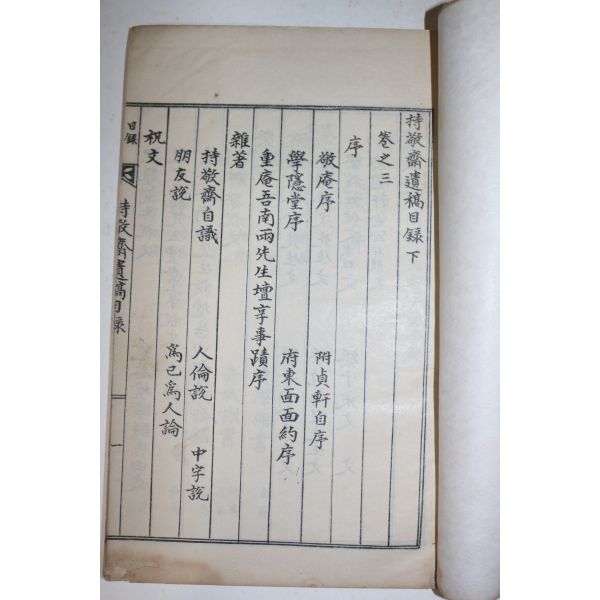 持敬齋遺稿目錄 下
卷之三
序
敬庵序 附貞軒自序
學隱堂序 府東面面約序
重庵吾南兩先生壇享事蹟序
雜著
持敬齋自識 人倫說 中字說
朋友說 爲已爲人論
祝文
目錄 持敬齋遺稿目錄 一